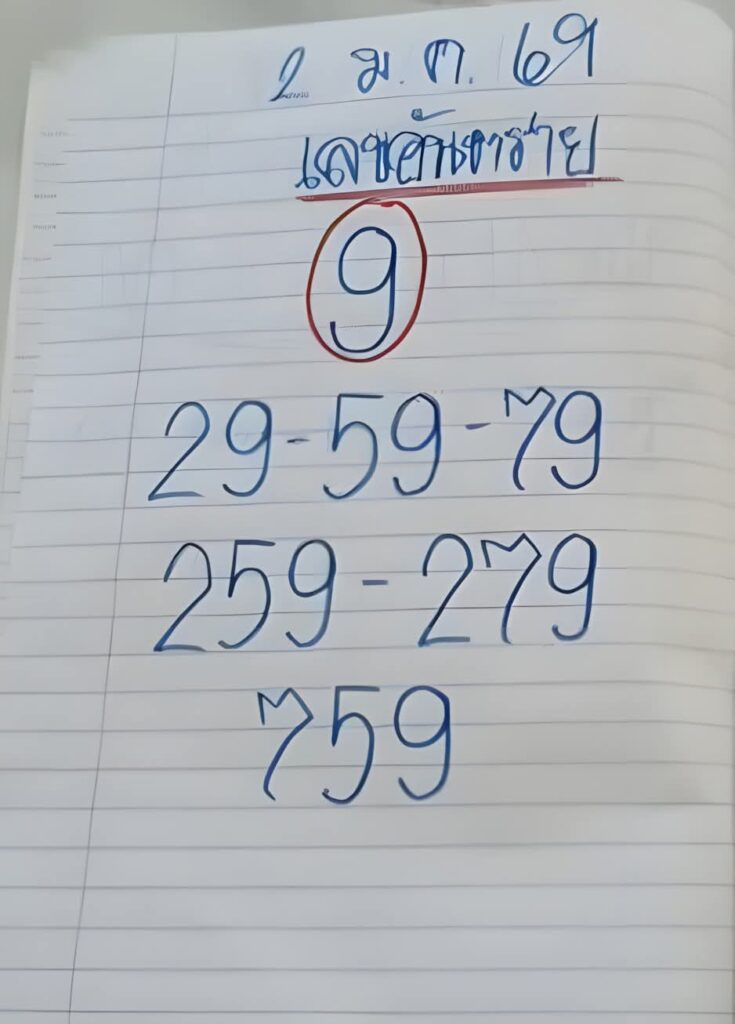 2 ม.ค. 69
เลขอันตราย
9
29-59-79
259-279
759